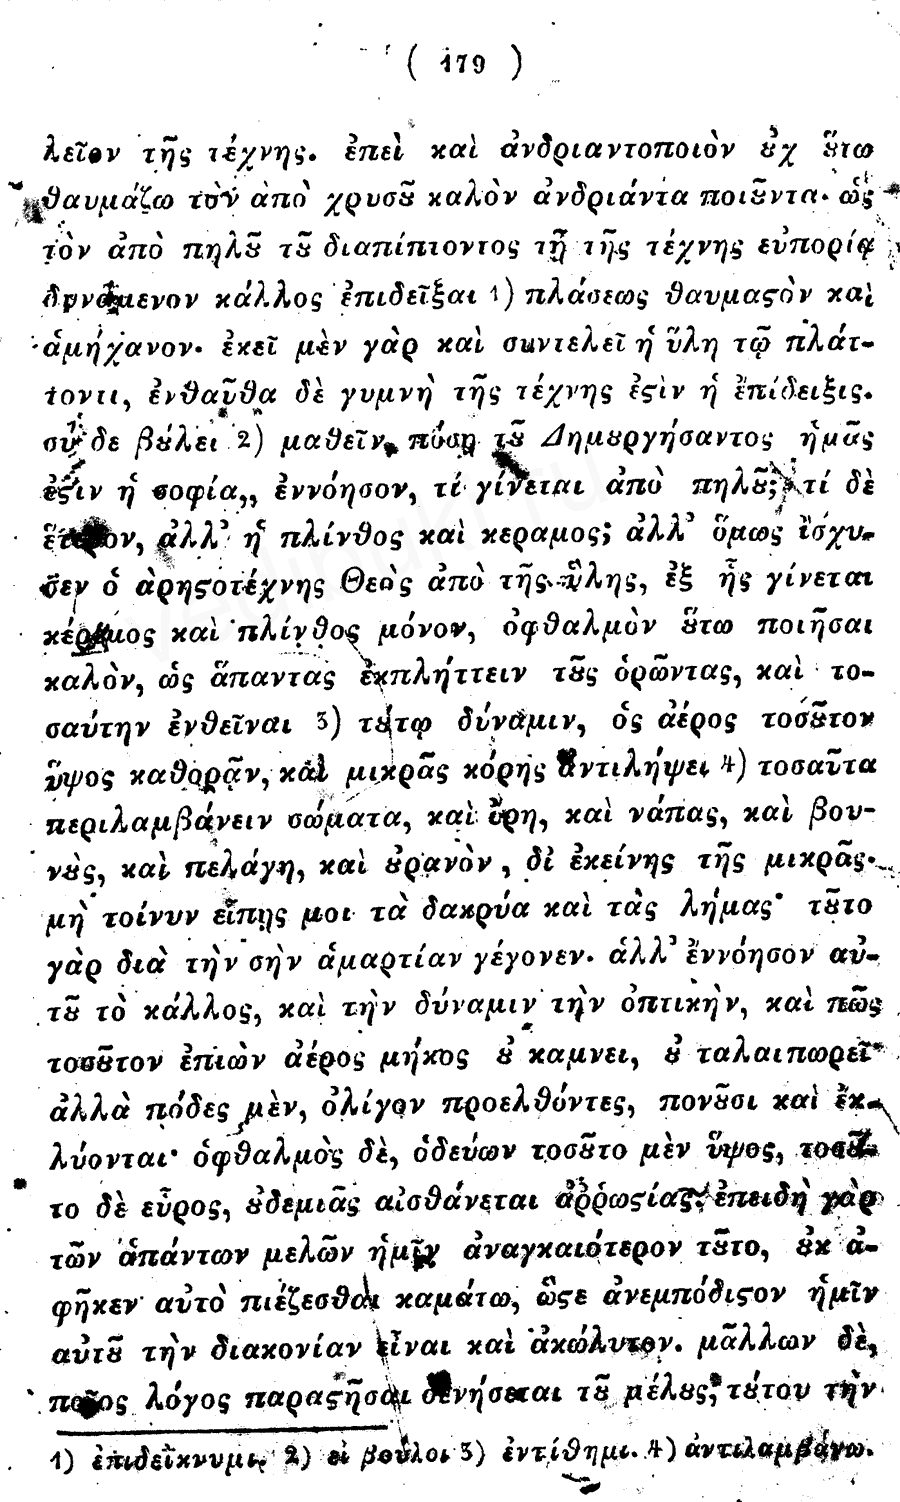 ( 179 )
λεῖον τῆς τέχνης. ἐπεὶ καὶ ἀνδριαντοποιὸν ȣ̓χ ȣ̔́τω
θαυμάζω τὸν ἀπὸ χρυσȣ͂ καλὸν ἀνδριάντα ποιȣ͂ντα· ὡς
τὸν ἀπὸ πηλȣ͂ τȣ͂ διαπίπτοντος τῇ τῆς τέχνης εὐπορίᾳ
δυνάμενον κάλλος ἐπιδεῖξαι 1) πλάσεως θαυμαϛὸν καὶ
ἀμήχανον· ἐκεῖ μὲν γὰρ καὶ συντελεῖ ἡ ὕλη τῷ πλάτ-
τοντι, ἐνθαῦθα δὲ γυμνὴ τῆς τέχνης ἐϛὶν ἡ ἐπίδειξις.
σὺ δε βȣ́λει 2) μαθεῖν, πόση τȣ͂ Δημȣργήσαντος ἡμᾶς
ἐϛὶν ἡ σοφία,, ἐννόησον, τί γίνεται ἀπὸ πηλȣ͂; τί δὲ
ἕτερον, ἀλλ᾽ ἡ πλίνθος καὶ κεραμος; ἀλλ᾽ ὅμως ἴσχυ-
σεν ὁ ἀρηϛοτέχνης Θεὸς ἀπὸ τῆς ὕλης, ἐξ ἧς γίνεται
κέραμος καὶ πλίνθος μόνον, ὀφθαλμὸν ȣ̔́τω ποιῆσαι
καλὸν, ὡς ἅπαντας ἐκπλήττειν τȣ̀ς ὁρῶντας, καὶ το-
σαύτην ἐνθεῖναι 3) τȣ́τῳ δύναμιν, ὁς ἀέρος τοσȣ͂τον
ὕψος καθορᾷν, καὶ μικρᾶς κόρης ἀντιλήψει 4) τοσαῦτα
περιλαμβάνειν σώματα, καὶ ὄρη, καὶ νάπας, καὶ βου-
νȣ̀ς, καὶ πελάγη, καὶ ȣ̓ρανὸν, δἰ ἐκείνης τῆς μικρᾶς·
μὴ τοίνυν εἴπῃς μοι τὰ δακρύα καὶ τὰς λήμας· τȣ͂το
γὰρ διὰ τὴν σὴν ἁμαρτίαν γέγονεν· ἀλλ᾽ ἐννόησον αὐ-
τȣ͂ τὸ κάλλος, καὶ τὴν δύναμιν τὴν ὀπτικὴν, καὶ πῶς
τοσȣ͂τον ἐπιὼν ἀέρος μῆκος ȣ̓ καμνει, ȣ̓ ταλαιπωρεῖ·
ἀλλὰ πόδες μὲν, ὀλίγον προελθόντες, πονȣ͂σι καὶ ἐκ-
λύονται· ὀφθαλμὸς δὲ, ὁδεύων τοσȣ͂το μὲν ὕψος, τοσȣ͂-
το δὲ εὖρος, ȣ̓δεμιᾶς αἰσθάνεται ἀῤῥωϛίας; ἐπειδὴ γὰρ
τῶν ἁπάντων μελῶν ἡμῖν ἀναγκαιότερον τȣ͂το, ȣ̓κ ἀ-
φῆκεν αὐτὸ πιέζεσθαι καμάτω, ὥϛε ἀνεμπόδιϛον ἡμῖν
αὐτȣ͂ τὴν διακονίαν εἶναι καὶ ἀκώλυτον. μᾶλλων δὲ,
ποῖος λόγος παραϛῆσαι δυνήσεται τȣ͂ μέλȣς, τȣ́του τὴν
1) ἐπιδείκνυμι. 2) εἰ βούλοι 3) ἐντίθημι. 4) ἀντιλαμβάνω.